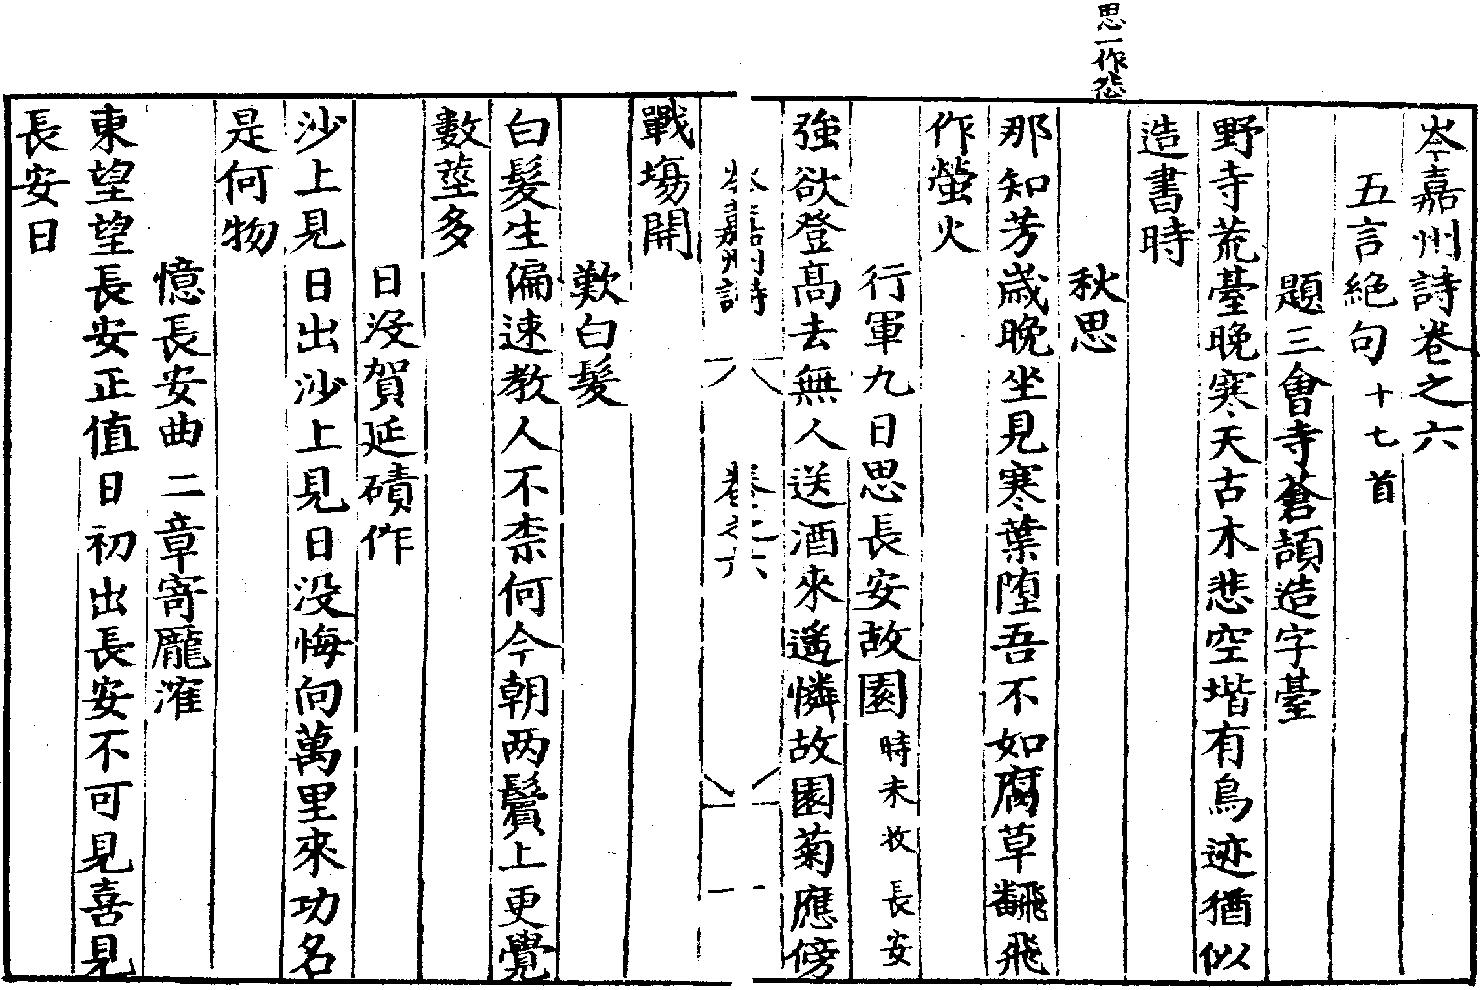 岑嘉州詩卷之六
五言絕句十七首
題三會寺蒼頡造字臺
野寺荒臺晚寒天古木悲空堦有鳥迹猶似
造書時
秋思
思一作
那知芳歲晚坐見寒葉堕吾不如腐草飜飛
作螢火
行軍九日思長安故園時未收長安
強欲登高去無人送酒來遙憐故園菊應傍
岑嘉州詩 卷之六 一
戰場開
歎白髮
白髮生偏速教人不柰何今朝两鬢上更覺
數莖多
日没賀延磧作
沙上見日出沙上見日没悔向萬里來功名
是何物
憶長安曲二章寄龐漼
東望望長安正值日初出長安不可見喜見
長安日